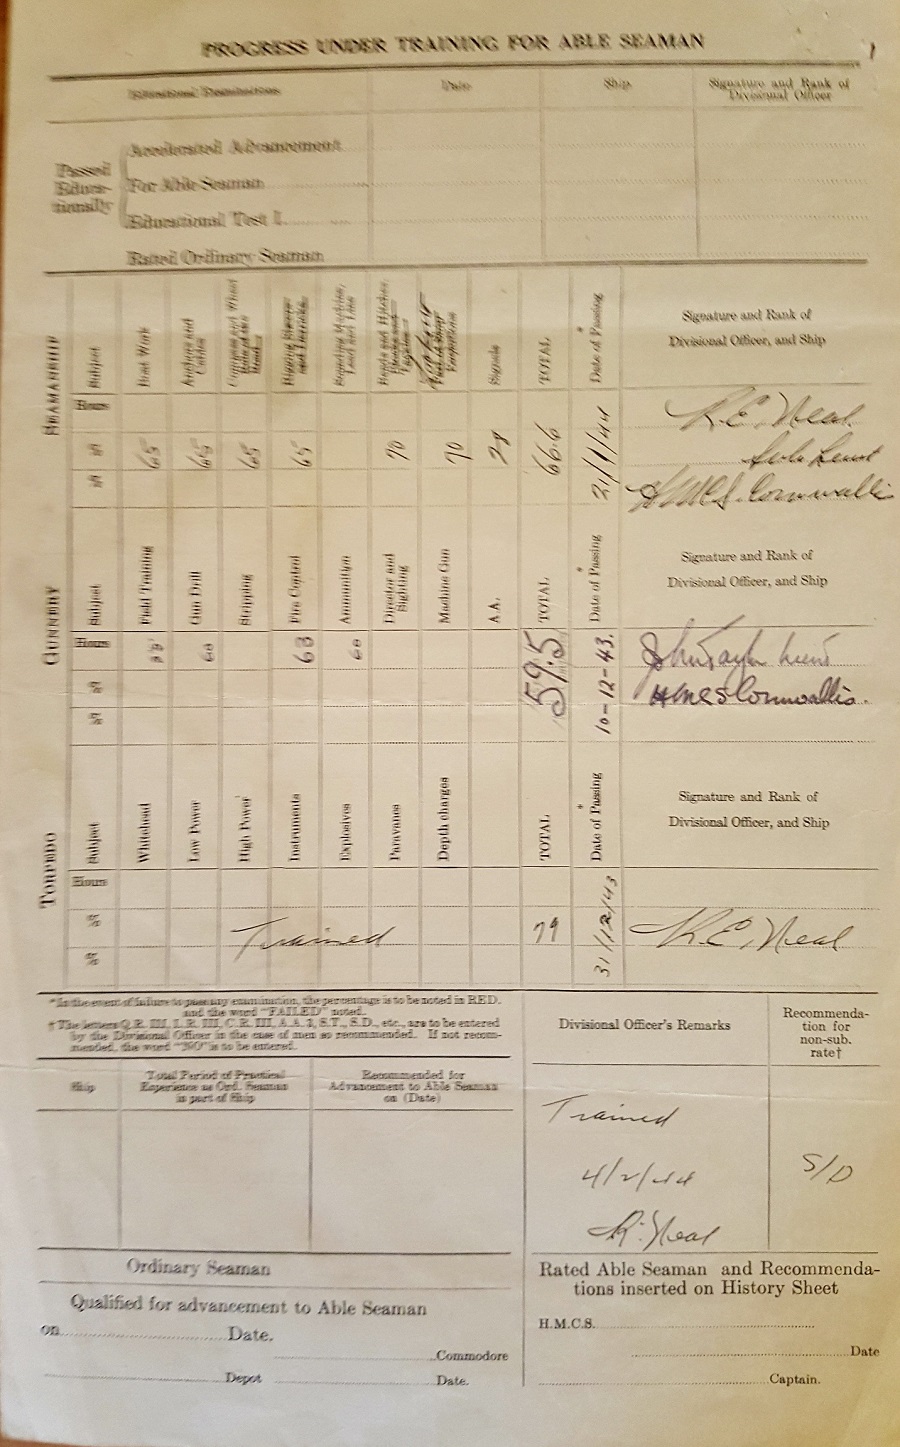 PROGRESS UNDER TRAINING FOR ABLE SEAMAN
Educational Examinations
Date
Ship
Signature and Rank of
Divisional Officer
Passed
Educa-
tionally
Accelerated Advancement
For Able Seaman
Educational Test I.
Rated Ordinary Seaman
SEAMANSHIP
Subject
Boat Work
Anchors and
Cables
Rigging
and Derricks
Sounding Machine,
Lead and Line
Bends and Hitches,
Signals
TOTAL
Date of * Passing
Signature and Rank of
Divisional Officer, and Ship
Hours
R.E. Neal
%
65
65
65
65
70
70
666
21/1/44
Sub Lieut
%
HMCS. Cornwallis
GUNNERY
Subject
Field Training
Gun Drill
Stripping
Fire Control
Ammunition
Director and
Sighting
Machine Gun
A.A.
TOTAL
Date of * Passing
Signature and Rank of
Divisional Officer, and Ship
Hours
60
60
59.5
10-12-43.
John Taylor Lieut
%
HMCS Cornwallis.
%
TORPEDO
Subject
Whitehead
Low Power
High Power
Instruments
Explosives
Paravanes
Depth charges
TOTAL
Date of * Passing
Signature and Rank of
Divisional Officer, and Ship
Hours
%
Trained
79
31/12/43
R.E. Neal
%
*In the event of failure to pass any examination, the percentage is to be noted in RED.
and the word "FAILED" noted.
† The letters Q.R. III, L.R. III, C.R. III, A.A. 3, S.T., S.D., etc., are to be entered
by the Divisional Officer in the case of men so recommended. If not recom-
mended, the word "NO" is to be entered.
Divisional Officer's Remarks
Recommenda-
tion for
non-sub.
rate†
Ship
Total Period of Practical
Experience as Ord. Seaman
in part of Ship
Recommended for
Advancement to Able Seaman
on (Date)
Trained
4/2/44
R. Neal
S/D
Ordinary Seaman
Qualified for advancement to Able Seaman
on Date.
Commodore
Depot Date.
Rated Able Seaman and Recommenda-
tions inserted on History Sheet
H.M.C.S.
Date
Captain.